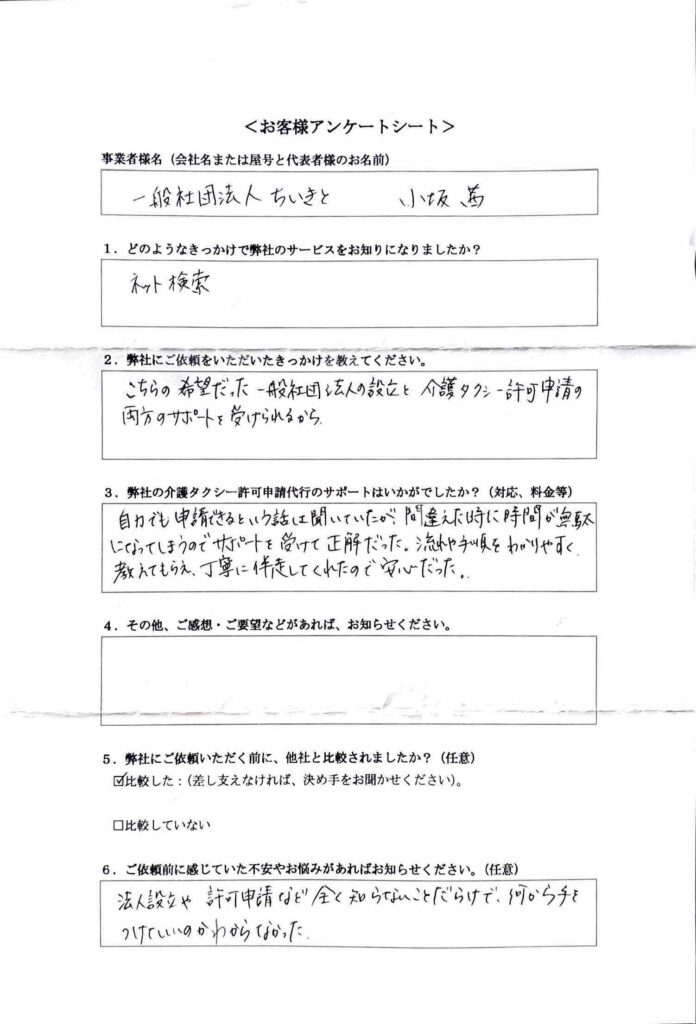 ＜お客様アンケートシート＞
事業者様名（会社名または屋号と代表者様のお名前）
一般社団法人ちいきと 小坂 茜
1．どのようなきっかけで弊社のサービスをお知りになりましたか？
ネット検索
2．弊社にご依頼をいただいたきっかけを教えてください。
こちらの希望だった一般社団法人の設立と介護タクシー許可申請の
両方のサポートを受けられるから.
3．弊社の介護タクシー許可申請代行のサポートはいかがでしたか？（対応、料金等）
自力でも申請できるという話は聞いていたが、間違えた時に時間が無駄
になってしまうのでサポートを受けて正解だった。流れや手順をわかりやすく
教えてもらえ、丁寧に伴走してくれたので安心だった。
4．その他、ご感想・ご要望などがあれば、お知らせください。
5．弊社にご依頼いただく前に、他社と比較されましたか？（任意）
☑比較した：（差し支えなければ、決め手をお聞かせください）。
□比較していない
6．ご依頼前に感じていた不安やお悩みがあればお知らせください。（任意）
法人設立や許可申請など全く知らないことだらけで、何から手を
つけていいのかわからなかった.